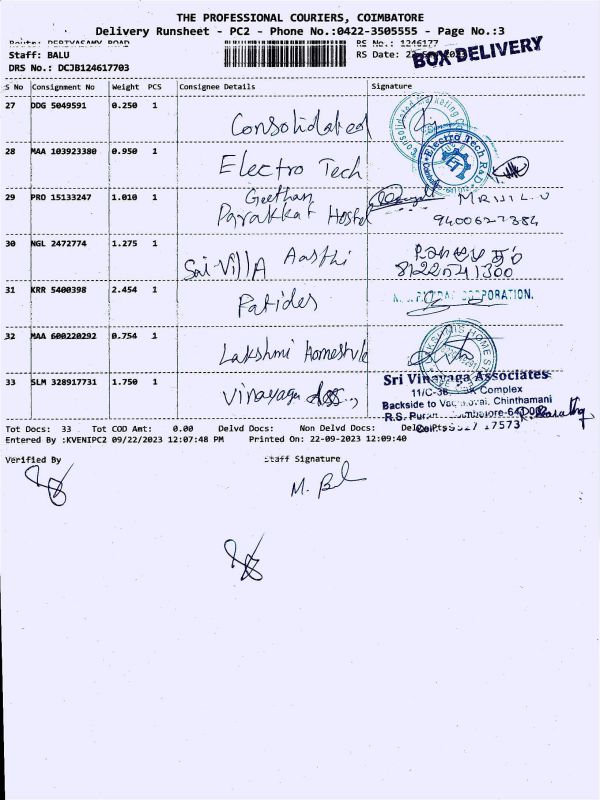 THE PROFESSIONAL COURIERS, COIMBATORE
Delivery Runsheet - PC2 - Phone No.:0422-3505555 - Page No.:3
Route: PERIYASAMY ROAD
RS No.: 1246177
Staff: BALU
RS Date:
BOX DELIVERY
DRS No.: DCJB124617703
S No Consignment No Weight PCS Consignee Details Signature
27 DDG 5049591 0.250 1 Consolidated
28 MAA 103923380 0.950 1 Electro Tech
Electro Tech R&D
29 PRO 15133247 1.010 1 Geethan
Parakkat Hostel
9400627384
30 NGL 2472774 1.275 1 Sai Villa Aasthi
8122541300
31 KRR 5400398 2.454 1 Patides
CORPORATION.
32 MAA 600220292 0.754 1 Lakshmi Homestyle
33 SLM 328917731 1.750 1 Vinayaga Ass.,
Sri Vinayaga Associates
11/C Complex
Backside to Chinthamani
R.S. Puram Coimbatore
Tot Docs: 33 Tot COD Amt: 0.00 Delvd Docs: Non Delvd Docs:
17573
Entered By :KVENIPC2 09/22/2023 12:07:48 PM Printed On: 22-09-2023 12:09:40
Verified By Staff Signature
M. Bal